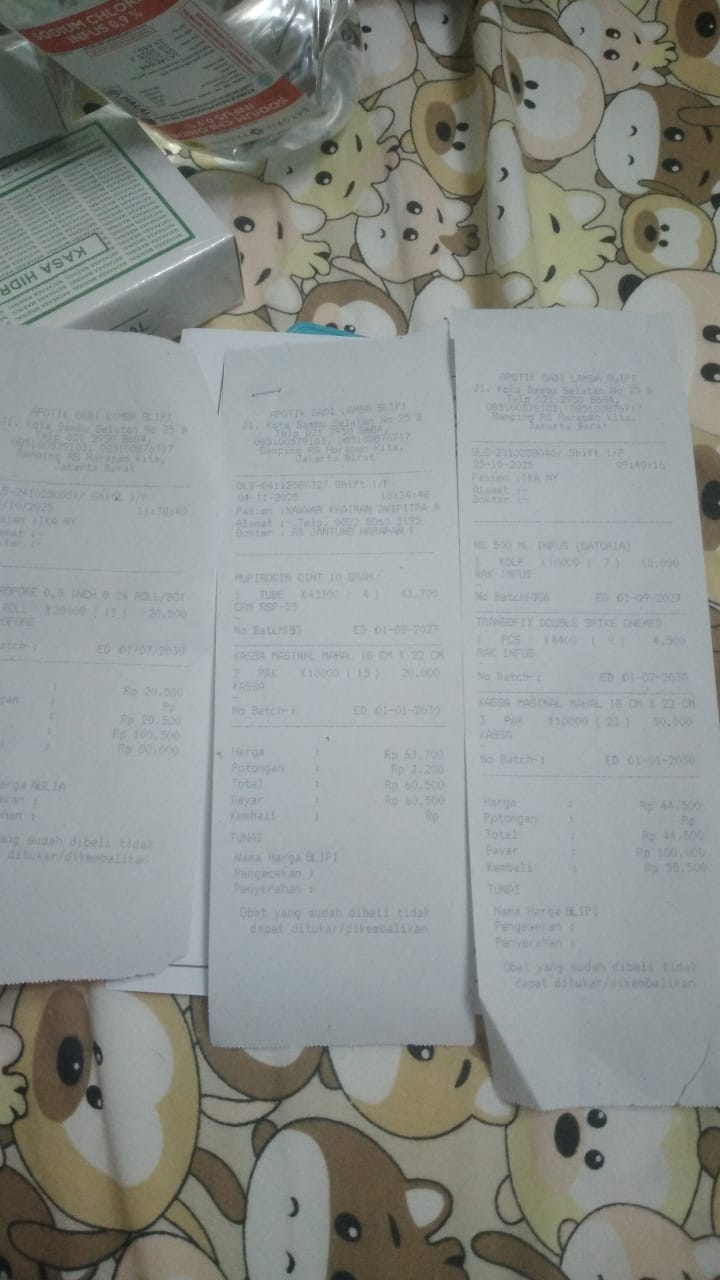 SODIUM CHLOR
INFUS 0.9 %
SODIUM CHLO
INFUS 0.9
KASA HIDR
APOTIK GADI LAMBA SLIPI
Jl. Kota Bambu Selatan No 25 B
Telp 021 2950 8684,
085100579103, 085100876717
Samping RS Harapan Kita,
Jakarta Barat
Shift 1/P
/10/2025 11:38:40
sien :IKA NY
amat :-
kter :-
ROPORE 0,5 INCH @ 24 ROLL/BOX
ROLL X20400 ( 13 ) 20.500
OPORE
atch-: ED :01/07/2030
: Rp 20.500
gan : Rp
: Rp 20.500
: Rp 100.500
: Rp 80.000
arga AULIA
ekan :
ahan :
ang sudah dibeli tidak
ditukar/dikembalikan
APOTIK GADI LAMBA SLIPI
Jl. Kota Bambu Selatan No 25 B
Telp 021 2950 8684,
085100579103, 085100876717
Samping RS Harapan Kita,
Jakarta Barat
GLS-0411258032/ Shift 1/P
04-11-2025 10:34:48
Pasien :NAWWAR KHAIRAN DWIFITRA A
Alamat :- Telp. 0022 8060 3195
Dokter : RS JANTUNG HARAPAN K
MUPIROCIN OINT 10 GRAM
1 TUBE X43700 ( 4 ) 43.700
CRM RSP-SS
No Batch:93 ED :01-09-2027
KASSA MASINAL MAHAL 16 CM X 22 CM
2 PAK X10000 ( 15 ) 20.000
KASSA
-
No Batch-: ED :01-01-2030
Harga : Rp 63.700
Potongan : Rp 3.200
Total : Rp 60.500
Bayar : Rp 60.500
Kembali : Rp
TUNAI
Nama Harga SLIPI
Pengecekan :
Penyerahan :
Obat yang sudah dibeli tidak
dapat ditukar/dikembalikan
APOTIK GADI LAMBA SLIPI
Jl. Kota Bambu Selatan No 25 B
Telp 021 2950 8684,
085100579103, 085100876717
Samping RS Harapan Kita,
Jakarta Barat
GLS-2310258040/ Shift 1/P
23-10-2025 09:40:16
Pasien :IKA NY
Alamat :-
Dokter :-
NS 500 ML INFUS (SATORIA)
1 KOLF X10000 ( 7 ) 10.000
RAK INFUS
-
No Batch:006 ED :01-09-2027
TRANSOFIX DOUBLE SPIKE ONEMED
1 PCS X4400 ( 9 ) 4.500
RAK INFUS
-
No Batch-: ED :01-07-2030
KASSA MASINAL MAHAL 16 CM X 22 CM
3 PAK X10000 ( 23 ) 30.000
KASSA
-
No Batch-: ED :01-01-2030
Harga : Rp 44.500
Potongan : Rp
Total : Rp 44.500
Bayar : Rp 100.000
Kembali : Rp 55.500
TUNAI
Nama Harga SLIPI
Pengecekan :
Penyerahan :
Obat yang sudah dibeli tidak
dapat ditukar/dikembalikan